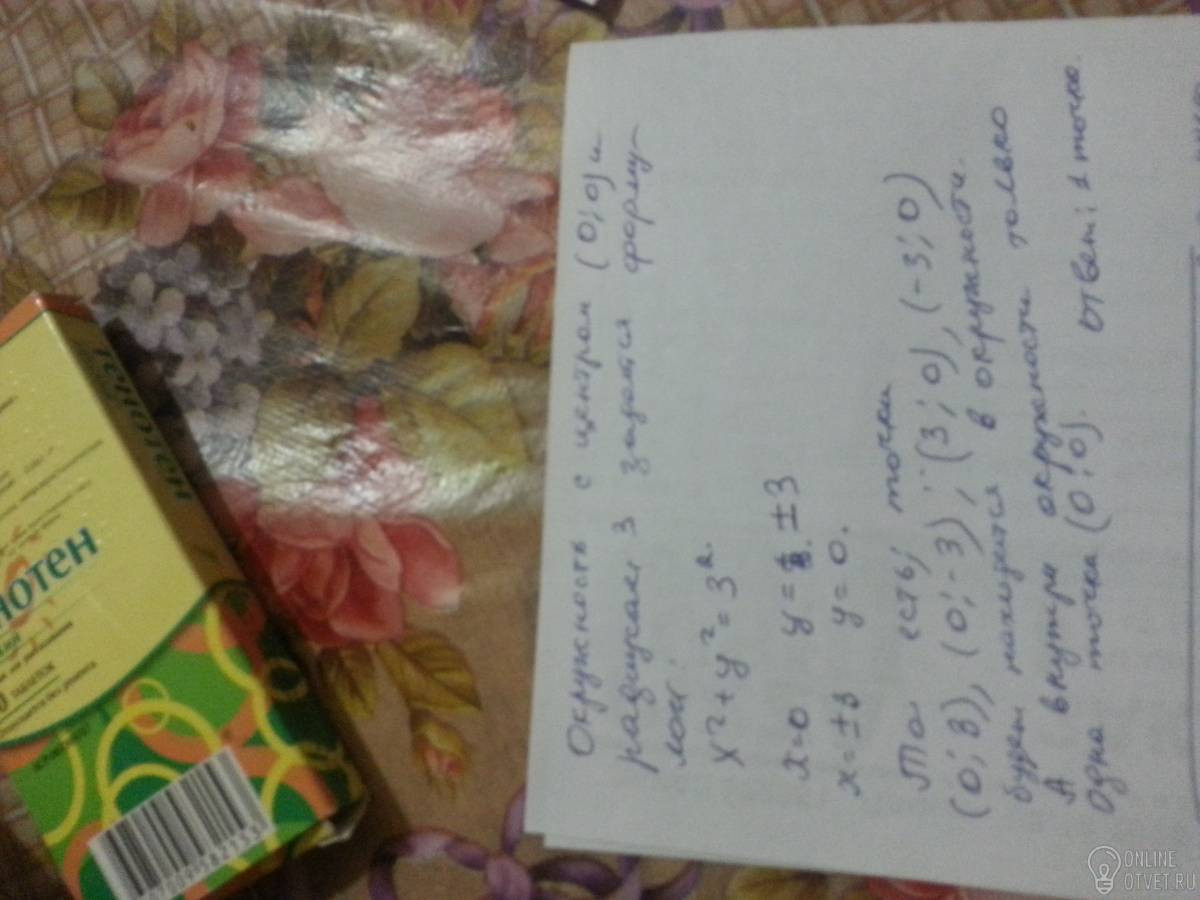 Окружность с центром (0;0) и
радиусам 3 задается форму-
лой:
x²+y²=3².
x=0 y= ±3
x=±3 y=0.
То есть, точки
(0;3), (0;-3), (3;0), (-3;0)
будем находится в окружности.
А внутри окружности только
Одна точка (0;0). Ответ: 1 точка.
ТЕНОТЕН
НОТЕН
ТАБЛЕТОК
ONLINE
OTVET.RU